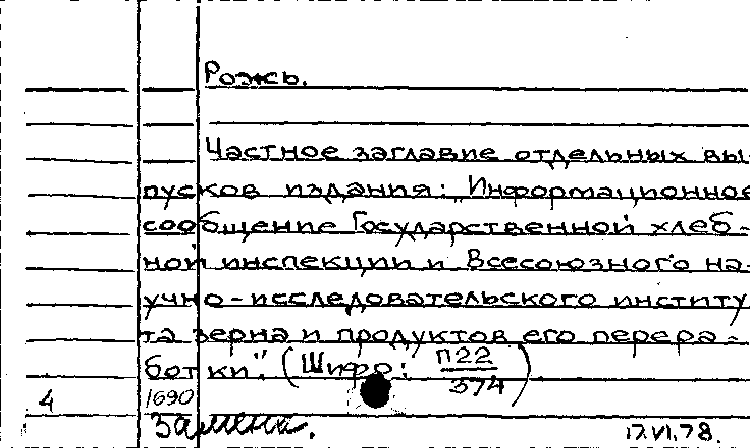 Рожь.
Частное заглавие отдельных вы-
пусков издания: „Информационное
сообщение Государственной хлеб-
ной инспекции и Всесоюзного на-
учно-исследовательского институ
та зерна и продуктов его перера-
ботки". (Шифр: П22
374)
4 1690
Замена. 17.VI.78.